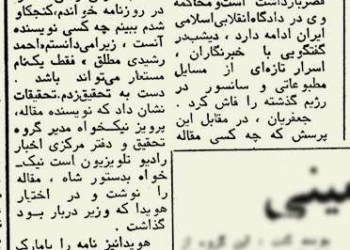 قصربازداشت است‌ومحاکمه
وی در دادگاه‌انقلابی‌اسلامی
ایران ادامه دارد ، دیشب‌در
گفتگویی با خبرنگاران ،
اسرار تازه‌ای از مسایل
مطبوعاتی و سانسور در
رژیم گذشته را فاش کرد .
جعفریان ، در مقابل این
پرسش که چه کسی مقاله
در روزنامه خواندم،کنجکاو
شدم ببینم چه کسی نویسنده
آنست ، زیرامی‌دانستم‌احمد
رشیدی مطلق ، فقط یک‌نام
مستعار می‌تواند باشد .
دست به تحقیق‌زدم.تحقیقات
نشان داد که نویسنده مقاله،
پرویز نیک‌خواه مدیر گروه
تحقیق و دفتر مرکزی اخبار
رادیو تلویزیون است نیک‌ـ
خواه بدستور شاه ، مقاله
را نوشت و در اختیار
هویدا که وزیر دربار بود
گذاشت .
هویدانیز نامه را بامارک